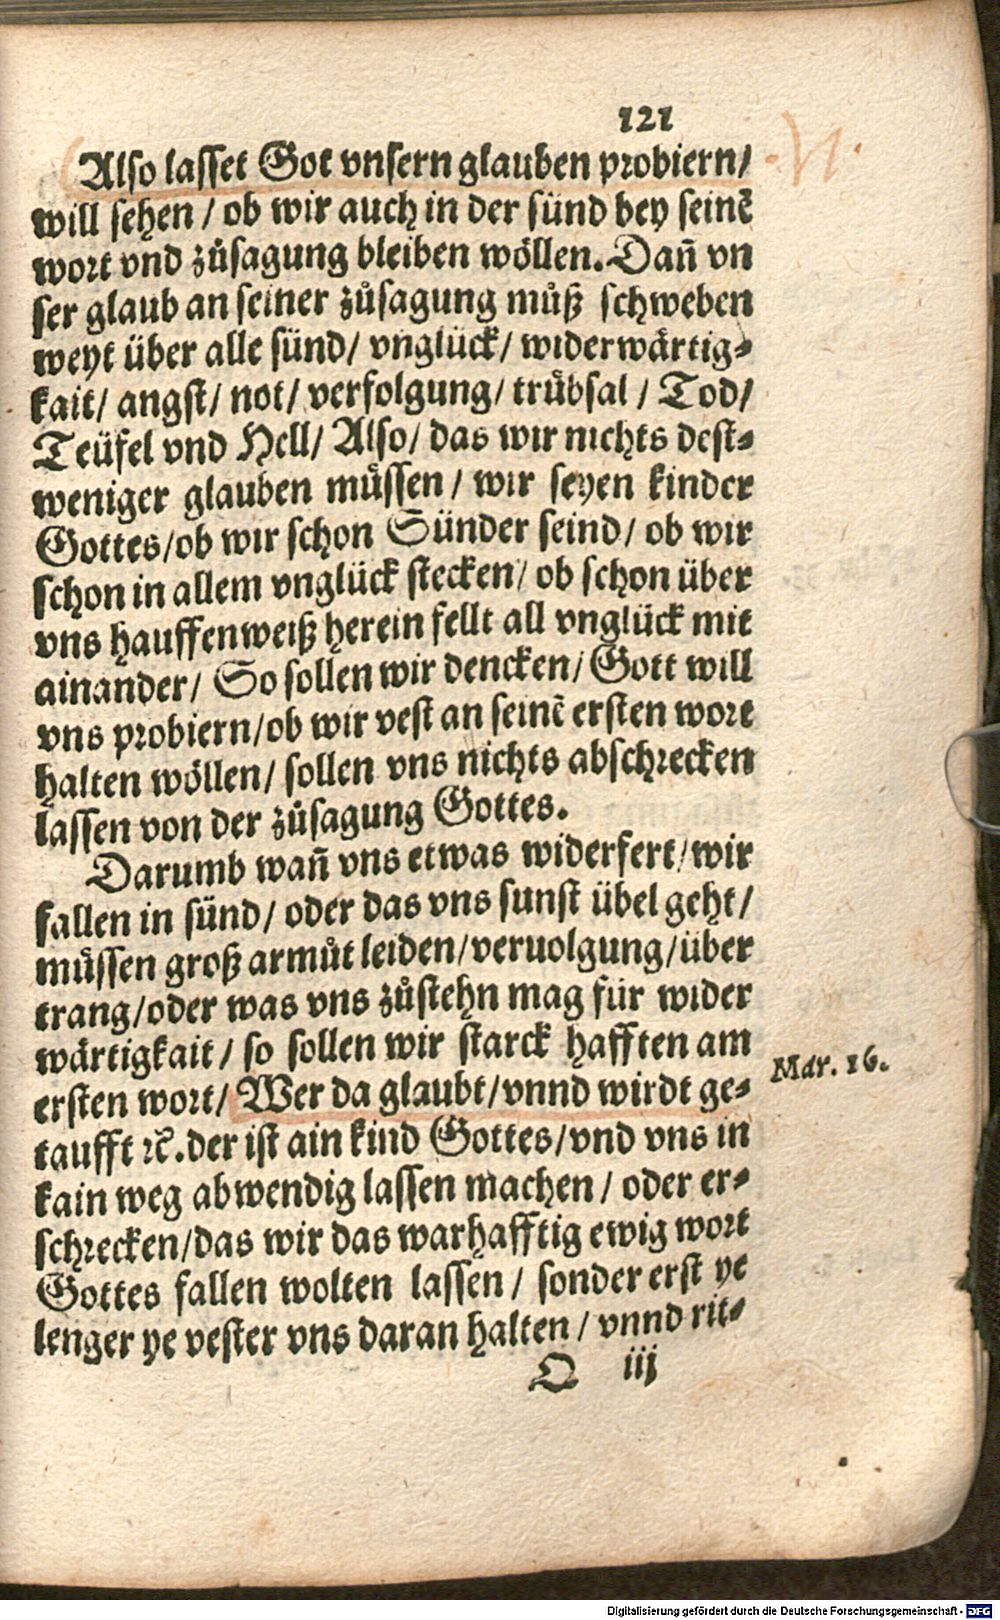 121
Also lasset Got vnsern glauben probiern/
will sehen / ob wir auch in der sünd bey seinẽ
wort vnd zůsagung bleiben wöllen. Dañ vn
ser glaub an seiner zůsagung můß schweben
weyt über alle sünd/ vnglück/ widerwärtig-
kait/ angst/ not/ verfolgung/ trůbsal / Tod/
Teüfel vnd Hell/ Also/ das wir nichts dest-
weniger glauben müssen / wir seyen kinder
Gottes/ob wir schon Sünder seind/ ob wir
schon in allem vnglück stecken/ ob schon über
vns hauffenweiß herein fellt all vnglück mit
ainander/ So sollen wir dencken/ Gott will
vns probiern/ob wir vest an seinẽ ersten wort
halten wöllen/ sollen vns nichts abschrecken
lassen von der zůsagung Gottes.
Darumb wañ vns etwas widerfert/ wir
fallen in sünd/ oder das vns sunst übel geht/
müssen groß armůt leiden/veruolgung/über
trang/oder was vns zůstehn mag für wider
wärtigkait / so sollen wir starck hafften am
ersten wort/ Wer da glaubt/vnnd wirdt ge-
Mar. 16.
taufft ꝛc̃. der ist ain kind Gottes/vnd vns in
kain weg abwendig lassen machen / oder er-
schrecken/das wir das warhafftig ewig wort
Gottes fallen wolten lassen / sonder erst ye
lenger ye vester vns daran halten / vnnd rit-
Q iij
Digitalisierung gefördert durch die Deutsche Forschungsgemeinschaft - DFG